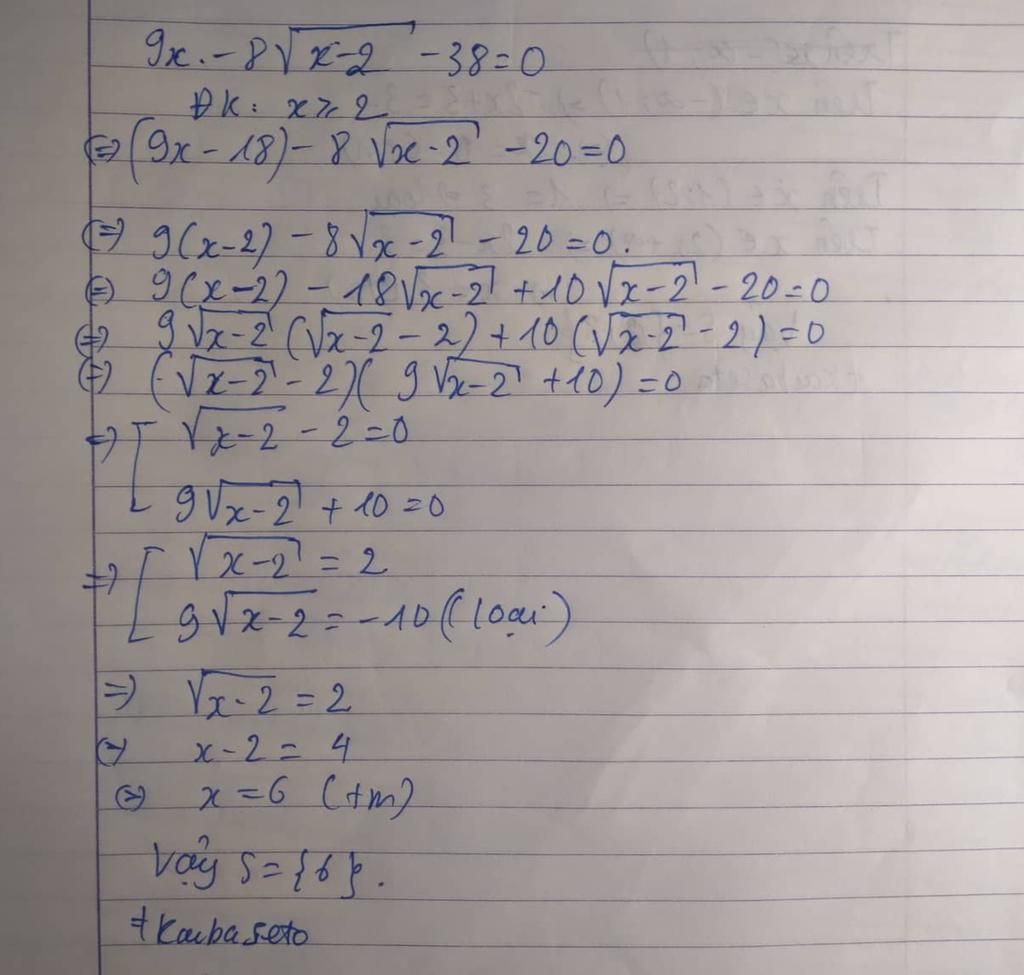 9x.-8√(x-2) -38=0
ĐK: x≥2
⇔ (9x-18)-8√(x-2) -20=0
⇔ 9(x-2)-8√(x-2) -20=0.
⇔ 9(x-2)-18√(x-2)+10√(x-2)-20=0
⇔ 9√(x-2)(√(x-2)-2)+10(√(x-2)-2)=0
⇔ (√(x-2)-2)(9√(x-2)+10)=0
⇒ [ √(x-2)-2=0
9√(x-2)+10=0
⇒ [ √(x-2)=2
9√(x-2)=-10(loại)
⇒ √(x-2)=2
⇔ x-2=4
⇔ x=6 (tm)
Vậy S={6}.
#Kaibaseto